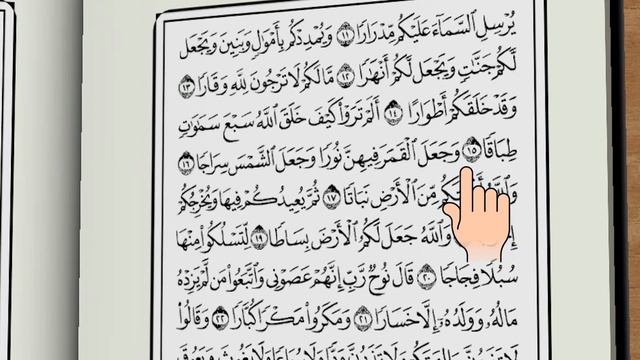 يُرْسِلِ ٱلسَّمَآءَ عَلَيْكُم مِّدْرَارًا ١١ وَيُمْدِدْكُم بِأَمْوَٰلٍ وَبَنِينَ وَيَجْعَل
لَّكُمْ جَنَّٰتٍ وَيَجْعَل لَّكُمْ أَنْهَٰرًا ١٢ مَّا لَكُمْ لَا تَرْجُونَ لِلَّهِ وَقَارًا ١٣
وَقَدْ خَلَقَكُمْ أَطْوَارًا ١٤ أَلَمْ تَرَوْا۟ كَيْفَ خَلَقَ ٱللَّهُ سَبْعَ سَمَٰوَٰتٍ
طِبَاقًا ١٥ وَجَعَلَ ٱلْقَمَرَ فِيهِنَّ نُورًا وَجَعَلَ ٱلشَّمْسَ سِرَاجًا ١٦
مِّنَ ٱلْأَرْضِ نَبَاتًا ١٧ ثُمَّ يُعِيدُكُمْ فِيهَا وَيُخْرِجُكُمْ
وَٱللَّهُ جَعَلَ لَكُمُ ٱلْأَرْضَ بِسَاطًا ١٩ لِّتَسْلُكُوا۟ مِنْهَا
سُبُلًا فِجَاجًا ٢٠ قَالَ نُوحٌ رَّبِّ إِنَّهُمْ عَصَوْنِى وَٱتَّبَعُوا۟ مَن لَّمْ يَزِدْهُ
مَالُهُۥ وَوَلَدُهُۥٓ إِلَّا خَسَارًا ٢١ وَمَكَرُوا۟ مَكْرًا كُبَّارًا ٢٢ وَقَالُوا۟